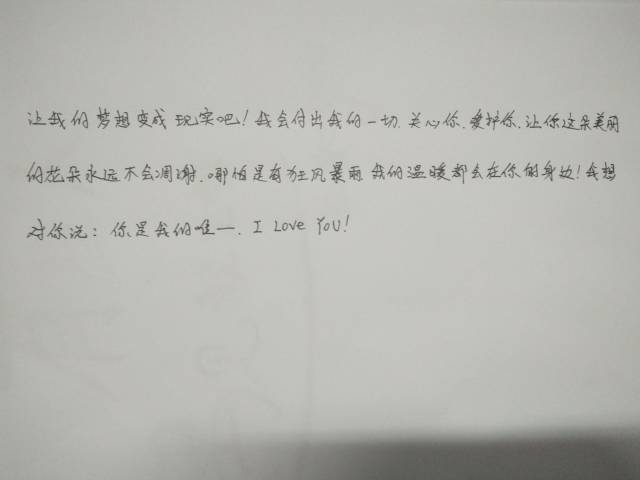 让我的梦想变成现实吧！我会付出我的一切.关心你.爱护你.让你这朵美丽
的花朵永远不会凋谢.哪怕是有狂风暴雨 我的温暖都会在你的身边！我想
对你说：你是我的唯一. I Love YOU!